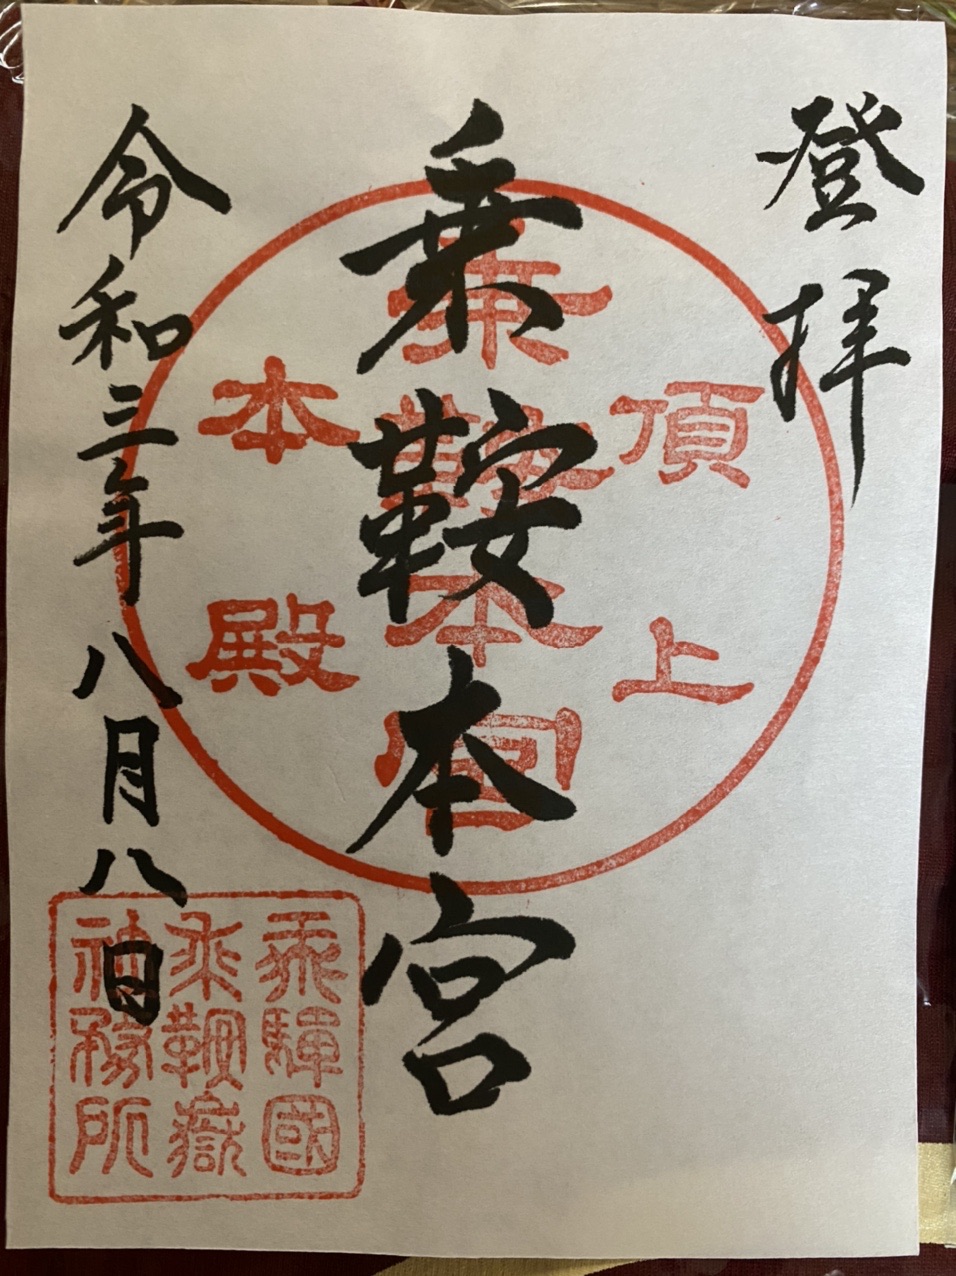 登拝
乗鞍本宮
令和三年八月八日
頂上
乗鞍本宮
本殿
飛騨國
乗鞍嶽
神務所